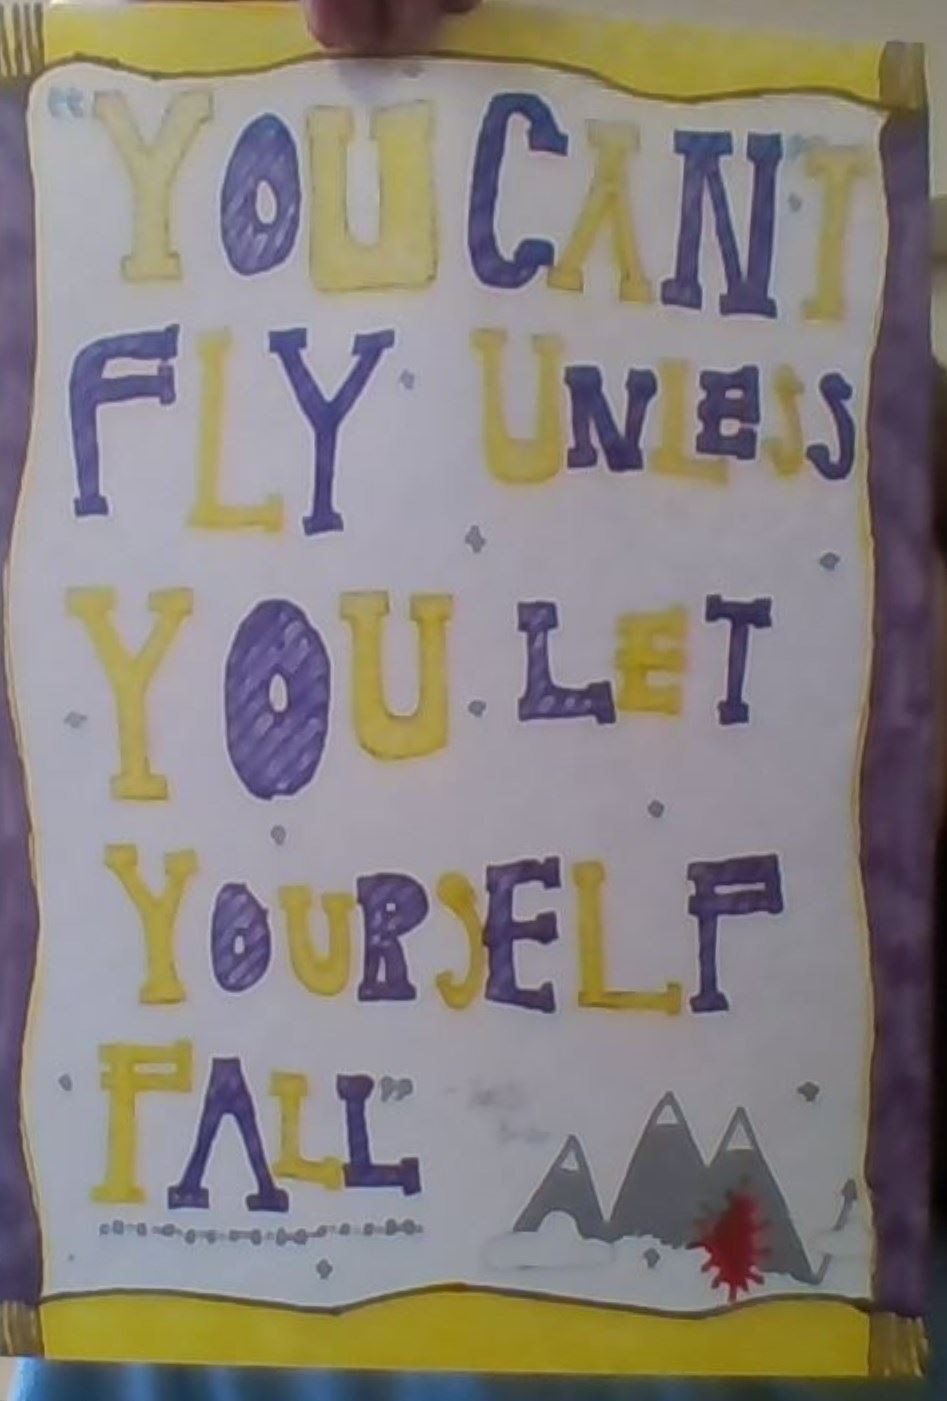 "YOU CAN'T
FLY UNLESS
YOU LET
YOURSELF
FALL"